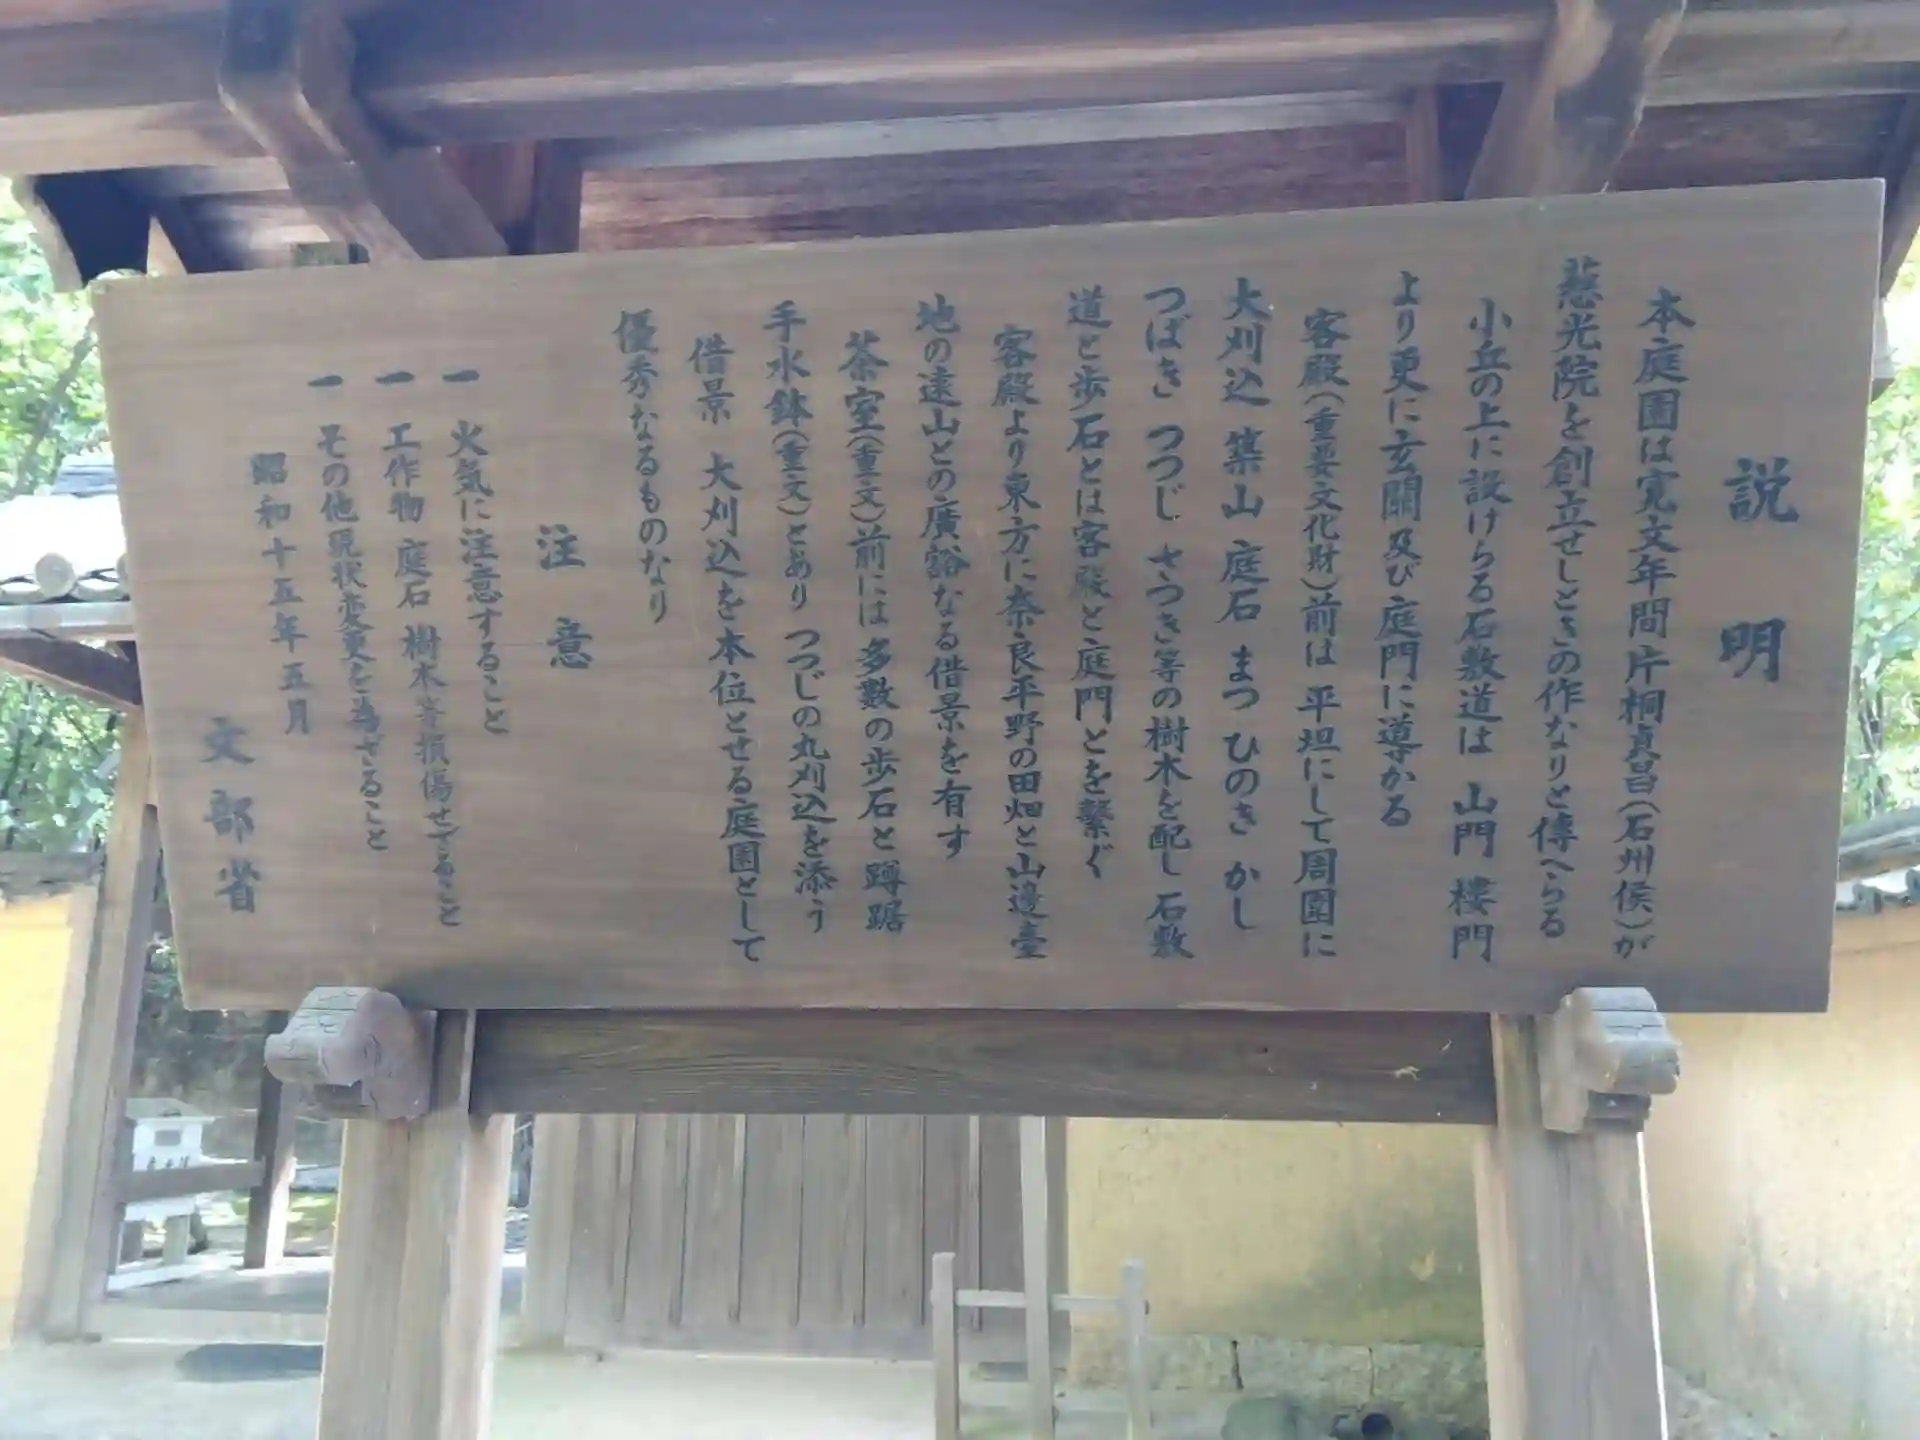 説明
本庭園は寛文年間片桐貞昌(石州侯)が
慈光院を創立せしときの作なりと傳へらる
小丘の上に設けらる石敷道は 山門 楼門
より更に玄關及び庭門に導かる
客殿(重要文化財)前は 平坦にして周囲に
大刈込 築山 庭石 まつ ひのき かし
つばき つつじ さつき等の樹木を配し 石敷
道と歩石とは客殿と庭門とを繫ぐ
客殿より東方に奈良平野の田畑と山邊臺
地の遠山との廣谿なる借景を有す
茶室(重文)前には多數の歩石と蹲踞
手水鉢(重文)とあり つつじの丸刈込を添う
借景 大刈込を本位とせる庭園として
優秀なるものなり
注意
一 火気に注意すること
一 工作物 庭石 樹木等損傷せざること
一 その他現状変更を為ざること
昭和十五年五月
文部省